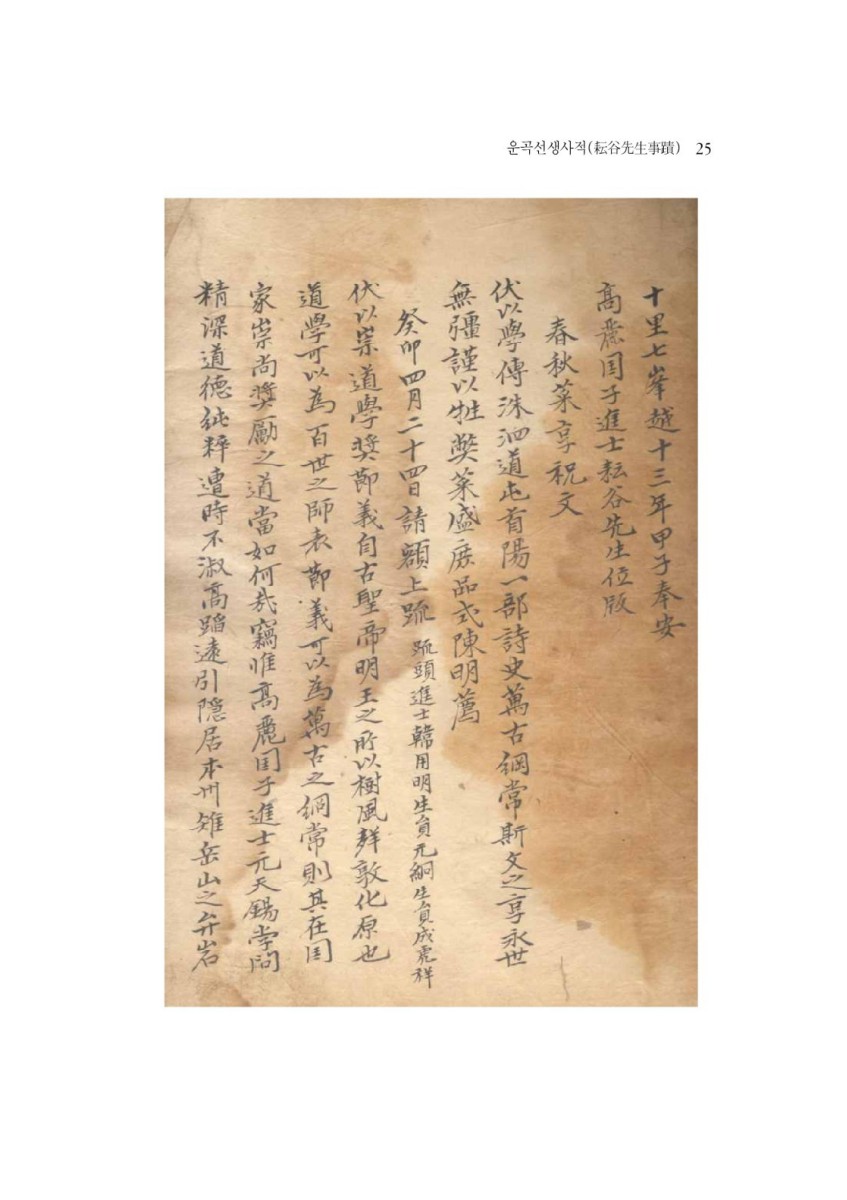 운곡선생사적(耘谷先生事蹟) 25
十里七峯越十三年甲子奉安
高麗囯子進士耘谷先生位版
春秋菜享祝文
伏以學傳洙泗道屯首陽一部詩史萬古綱常斯文之享永世
無疆謹以牲幣菜盛庶品式陳明薦
癸卯四月二十四日請額上疏 疏頭進士韓用明生員元嗣生員成虎祥
伏以崇道學奬節義自古聖帝明王之所以樹風聲敦化原也
道學可以為百世之師表節義可以為萬古之綱常則其在囯
家崇尚奬勵之道當如何㢤竊惟高麗囯子進士元天錫學問
精深道德純粹遭時不淑高蹈遠引隱居本州雉岳山之弁岩